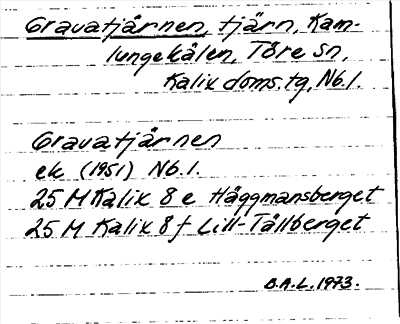 Gravatjärnen, tjärn, Kam-
lungekålen, Töre sn,
Kalix doms.tg, Nb.l.
Gravatjärnen
ek (1951) Nb.l.
25 M Kalix 8 e Häggmansberget
25 M Kalix 8 f Lill-Tällberget
B.A.L. 1973.